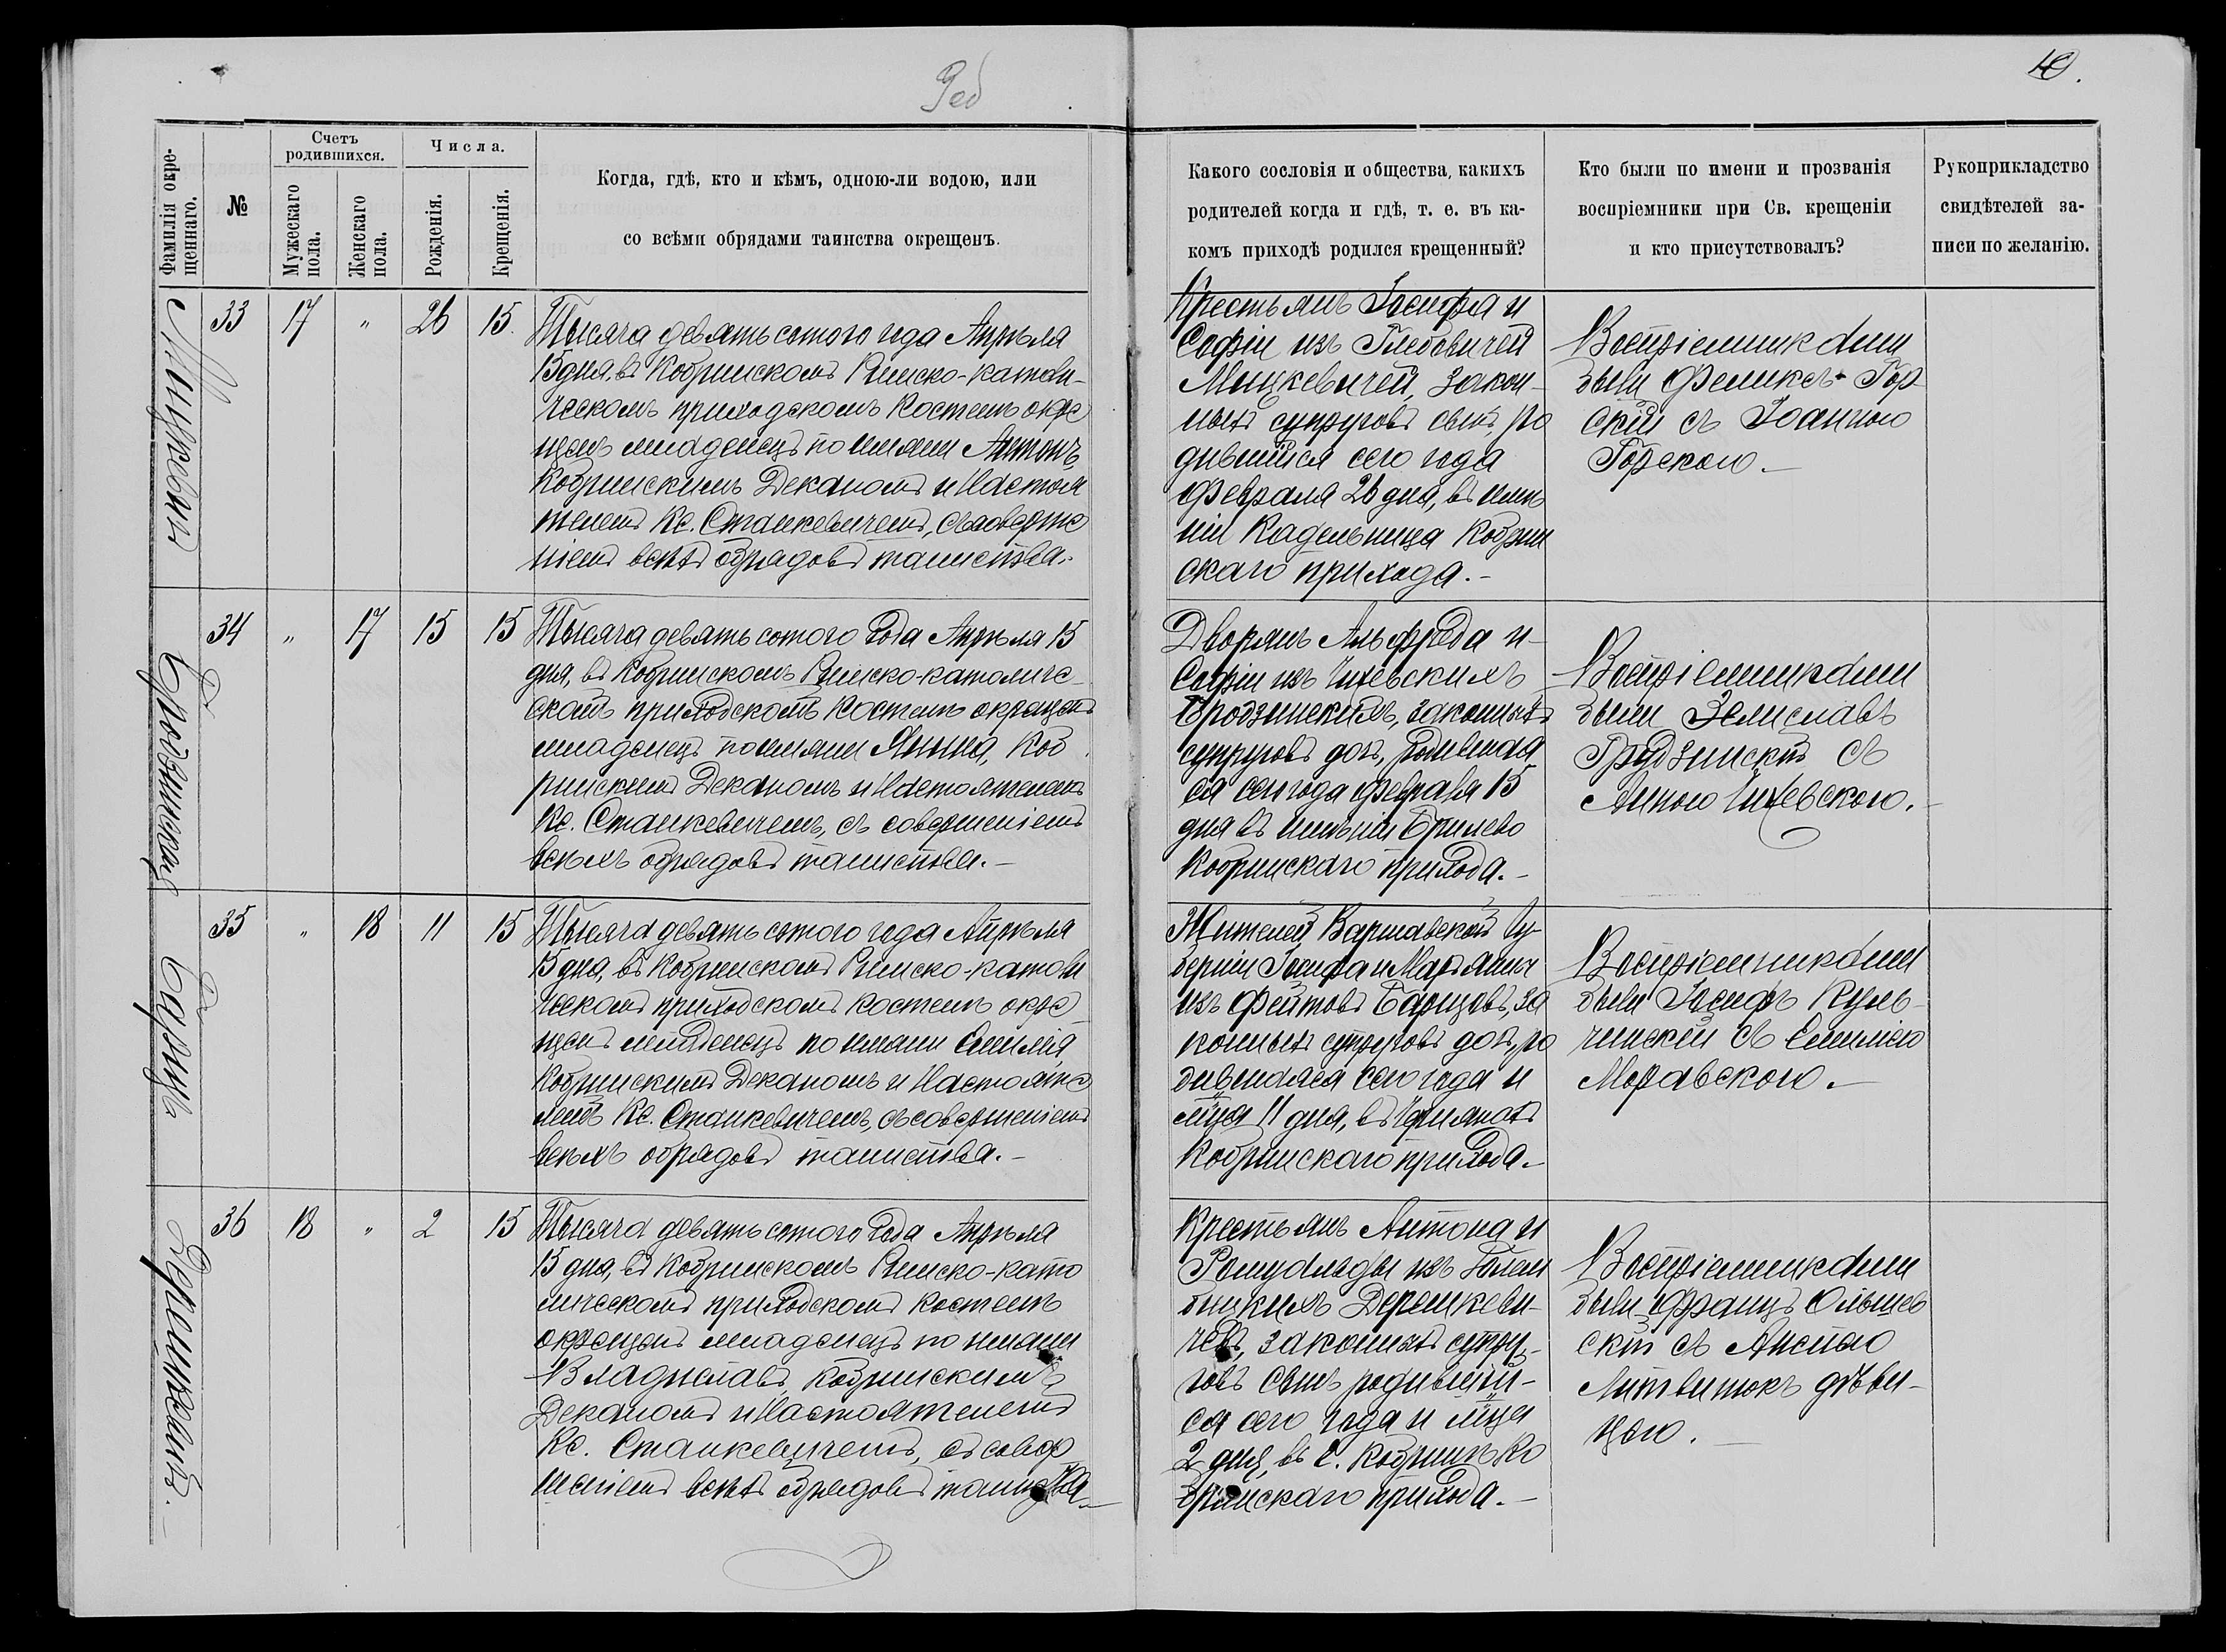 10.
Фамилія окре-
щеннаго.
№
Счетъ
родившихся.
Мужескаго
пола.
Женскаго
пола.
Числа.
Рожденія.
Крещенія.
Когда, гдѣ, кто и кѣмъ, одною-ли водою, или
со всѣми обрядами таинства окрещенъ.
Какого сословія и общества, какихъ
родителей когда и гдѣ, т. е. въ ка-
комъ приходѣ родился крещенный?
Кто были по имени и прозванія
воспріемники при Св. крещеніи
и кто присутствовалъ?
Рукоприкладство
свидѣтелей за-
писи по желанію.
33
17
"
26
15.
Тысяча девятьсотого года Апрѣля
15 дня, въ Кобринскомъ Римско-католи-
ческомъ приходскомъ костелѣ окре
щенъ младенецъ по имени Антонъ
Кобринскимъ Деканомъ и Настоя
телемъ Кс. Станкевичемъ, съ соверше
ніемъ всѣхъ обрядовъ таинства.
Крестьянъ Іосифа и
Софіи изъ Глебовичей
Мицкевичей, закон-
ныхъ супруговъ сынъ, ро
дившійся сего года
Февраля 26 дня, въ имѣ
ніи Кадельница Кобрин
скаго прихода.-
Воспріемниками
были Феликсъ Гор-
скій съ Іоанною
Горскою.-
34
"
17
15
15
Бродзинская
Тысяча девятьсотого года Апрѣля 15
дня, въ Кобринскомъ Римско-католиче-
скомъ приходскомъ костелѣ окрещенъ
младенецъ по имени Янина, Коб
ринскимъ Деканомъ и Настоятелемъ
Кс. Станкевичемъ, съ совершеніемъ
всѣхъ обрядовъ таинства.-
Дворянъ Альфреда и
Софіи изъ
Бродзинскихъ, законныхъ
супруговъ дочь, родившая
ся сего года февраля 15
дня въ имѣніи Брилево
Кобринскаго прихода.-
Воспріемниками
были
Грудзинскій съ
Анною
35
"
18
11
15
Барицъ
Тысяча девятьсотого года Апрѣля
15 дня, въ Кобринскомъ Римско-католи
ческомъ приходскомъ костелѣ окре
щенъ младенецъ по имени Емилія
Кобринскимъ Деканомъ и Настояте
лемъ Кс. Станкевичемъ, съ совершеніемъ
всѣхъ обрядовъ таинства.-
Жителей Варшавской Гу-
берніи Іосифа и Маріянны
изъ Фейтовъ Барицовъ, за
конныхъ супруговъ дочь, ро
дившаяся сего года и
м̃ца 11 дня, въ
Кобринскаго прихода.-
Воспріемниками
были Іосифъ Куль-
чинскій съ Емиліею
Моравскою.-
36
18
"
2
15
Дерешкевичъ.
Тысяча девятьсотого года Апрѣля
15 дня, въ Кобринскомъ Римско-като
лическомъ приходскомъ костелѣ
окрещенъ младенецъ по имени
Владиславъ, Кобринскимъ
Деканомъ и Настоятелемъ
Кс. Станкевичемъ, съ совер
шеніемъ всѣхъ обрядовъ таинства-
Крестьянъ Антона и
Ромуальды изъ
Дерешкеви-
чевъ, законныхъ супру-
говъ сынъ родившій-
ся сего года и м̃ца
2 дня, въ г. Кобринѣ Ко
бринскаго прихода.-
Воспріемниками
были Францъ Ольшев
скій съ
дѣви-
цею.-